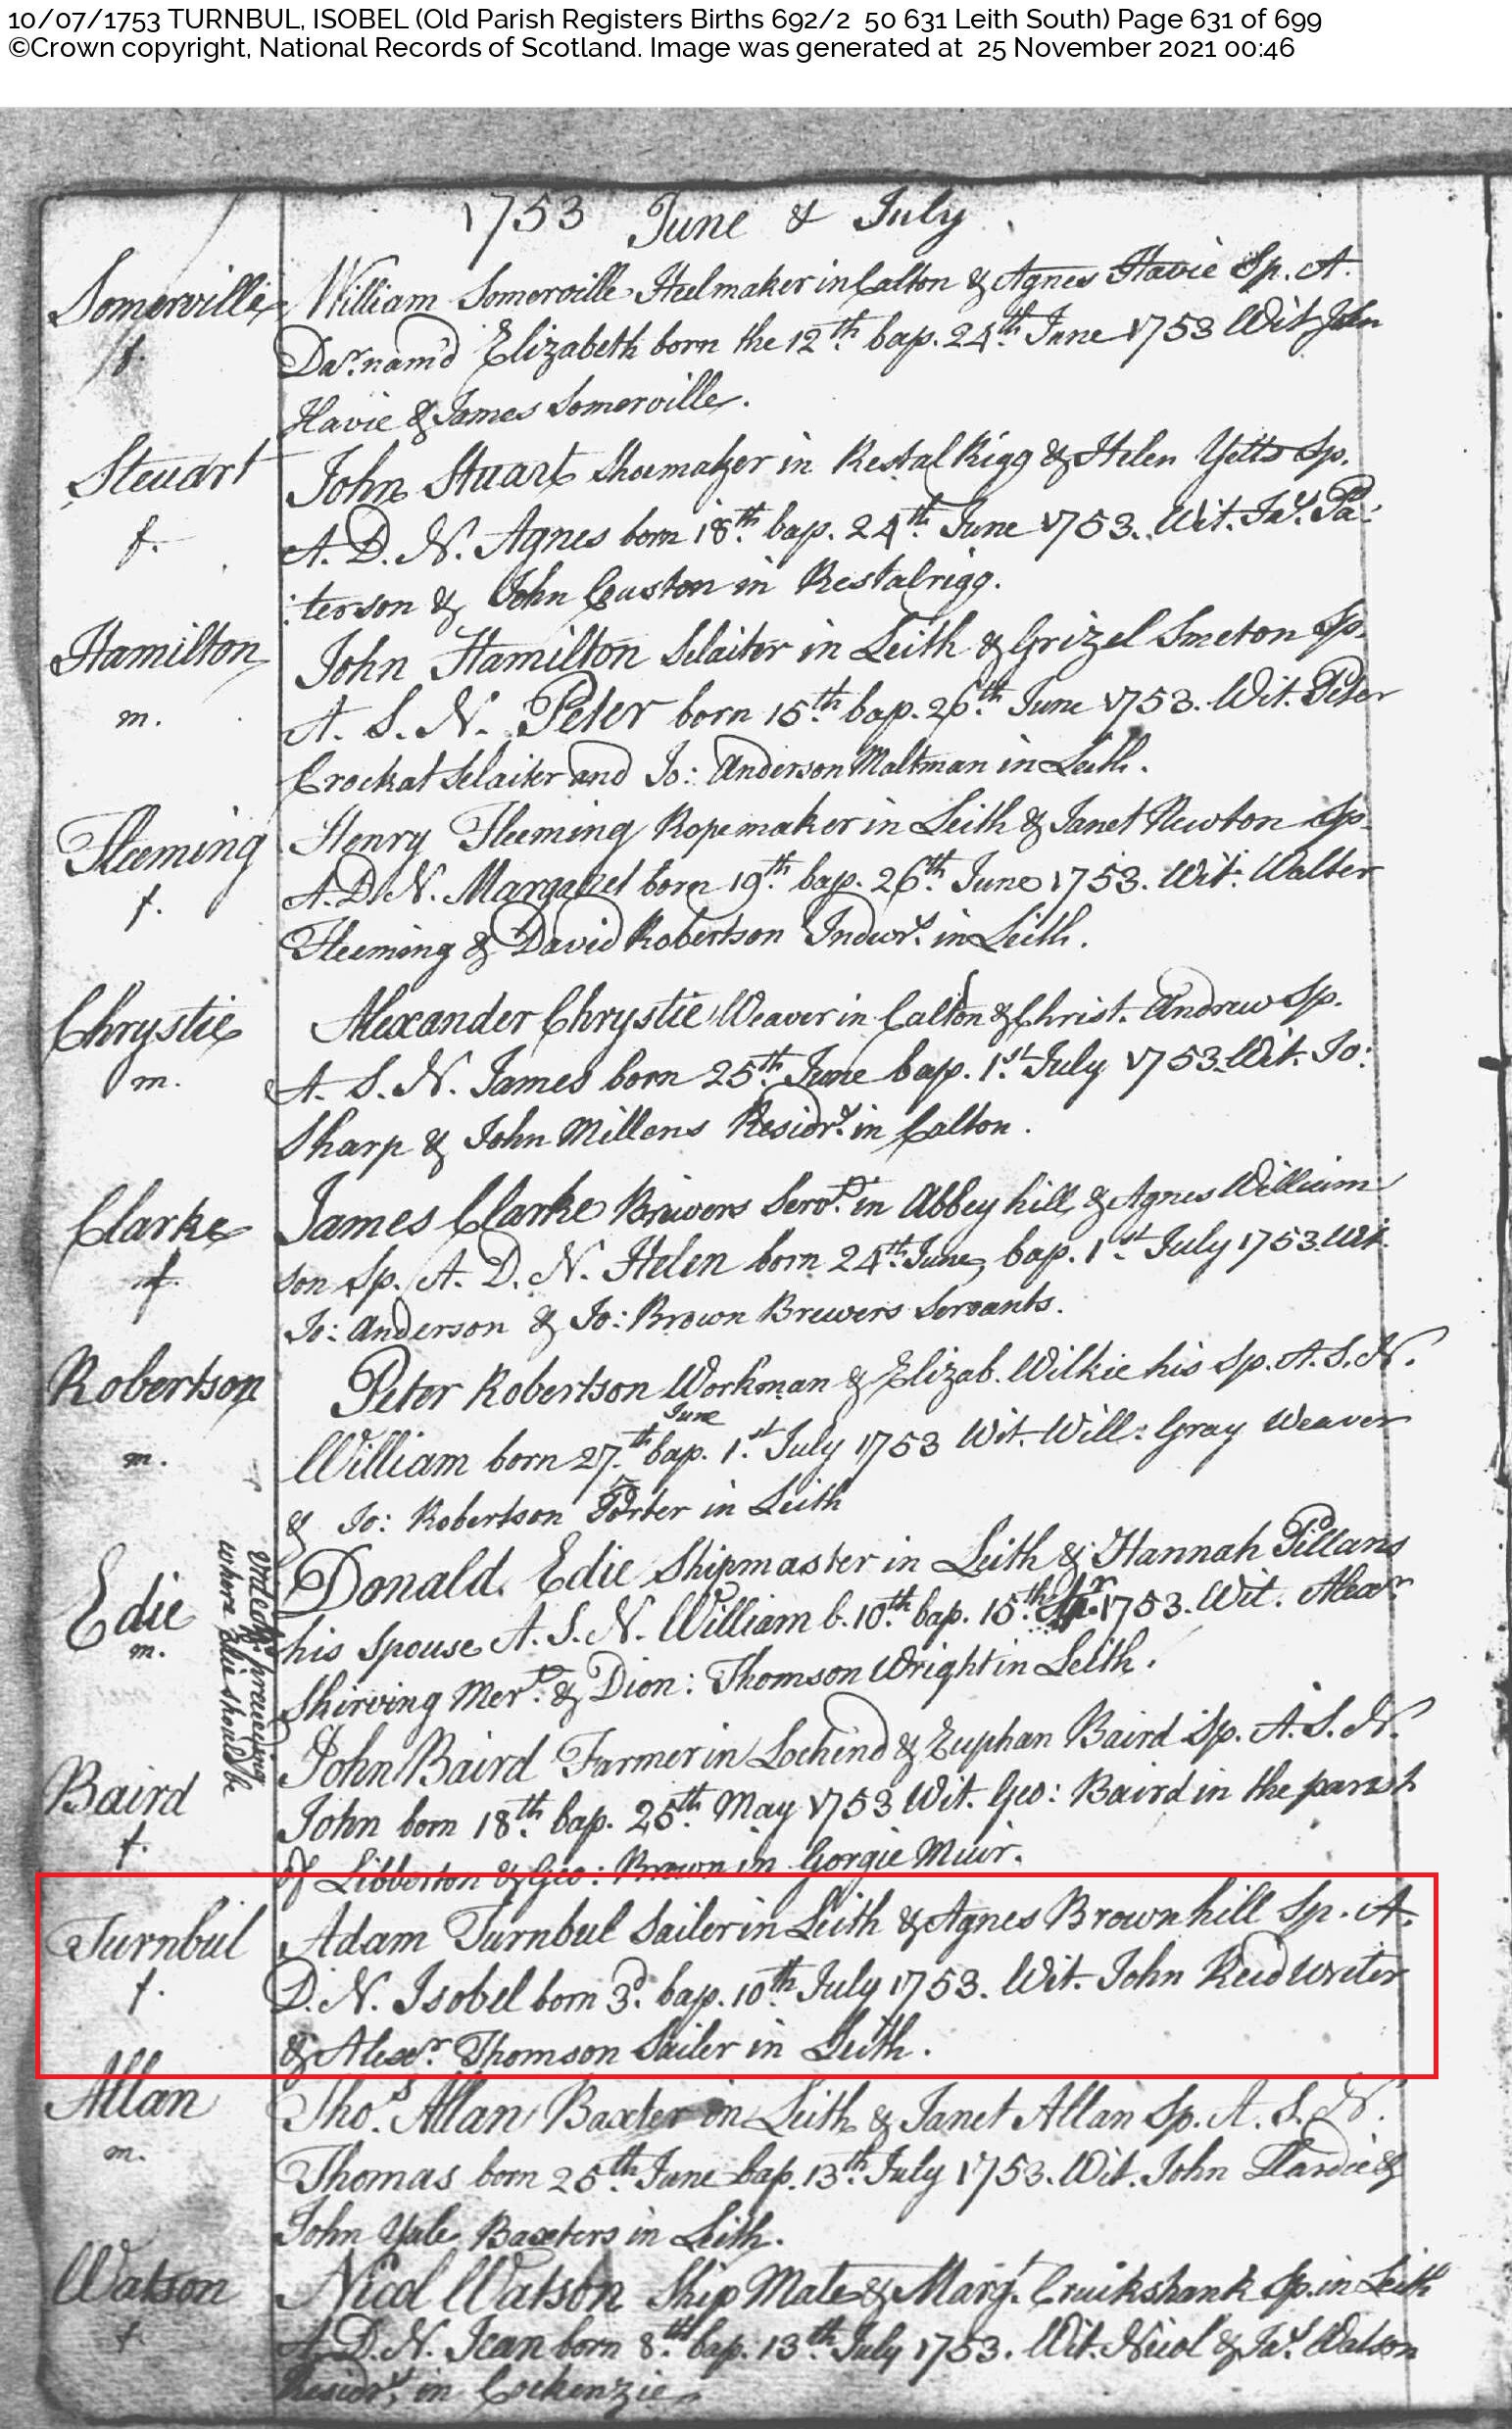 10/07/1753 TURNBUL, ISOBEL (Old Parish Registers Births 692/2 50 631 Leith South) Page 631 of 699
©Crown copyright, National Records of Scotland. Image was generated at 25 November 2021 00:46
1753 June & July
Somerville William Somerville Heelmaker in Calton & Agnes Havie Sp. A.
f. Dar. nam'd Elizabeth born the 12th. bap. 24th June 1753 Wit. John
Havie & James Somerville.
Steuart John Stuart Shoemaker in Restal Rigg & Helen Yetts Sp.
f. A. D. N. Agnes born 18th. bap. 24th. June 1753. Wit. Jas. Pa:
:terson & John Couston in Restalrigg.
Hamilton John Hamilton Sclaiter in Leith & Grizel Smeton Sp.
m. A. S. N. Peter born 15th. bap. 26th. June 1753. Wit. Peter
Crockat Sclaiter and Jo: Anderson Maltman in Leith.
Fleeming Henry Fleeming Ropemaker in Leith & Janet Newton Sp.
f. A. D. N. Margaret born 19th. bap. 26th. June 1753. Wit. Walter
Fleeming & David Robertson Indwrs. in Leith.
Chrystie Alexander Chrystie Weaver in Calton & Christ. Andrew Sp.
m. A. S. N. James born 25th. June bap. 1st. July 1753. Wit. Jo:
Sharp & John Millons Residrs. in Calton.
Clarke James Clarke Brewers Servt. in Abbey hill & Agnes William
f. son Sp. A. D. N. Helen born 24th. June, bap. 1st July 1753. Wit.
Jo: Anderson & Jo: Brown Brewers Servants.
Robertson Peter Robertson Workman & Elizab. Wilkie his Sp. A. S. N.
June
m. William born 27th. bap. 1st. July 1753 Wit. Will: Gray Weaver
& Jo: Robertson Porter in Leith
Edie Donald Edie Shipmaster in Leith & Hannah Pillans
m. his Spouse A. S. N. William b. 10th. bap. 15th. Apr. 1753. Wit. Alexr.
Shirving Mert. & Dion: Thomson Wright in Leith.
preceeding
where Edie should be
Baird John Baird Farmer in Lochend & Euphan Baird Sp. A. S. N.
f. John born 18th. bap. 25th. May 1753 Wit. Geo: Baird in the parish
of Libberton & Geo: Brown in Gorgie Muir.
Turnbul Adam Turnbul Sailer in Leith & Agnes Brownhill Sp. A.
f. D. N. Isobel born 3d. bap. 10th. July 1753. Wit. John Reid writer
& Alexr. Thomson Sailer in Leith.
Allan Thos. Allan Baxter in Leith & Janet Allan Sp. A. S. N.
m. Thomas born 25th June bap. 13th. July 1753. Wit. John Hardie &
John Yule Baxters in Leith.
Watson Nicol Watson Ship Mate & Margt. Cruikshank Sp. in Leith
f. A. D. N. Jean born 8th. bap. 13th. July 1753. Wit. Nicol & Jas. Watson
Residrs. in Cockenzie